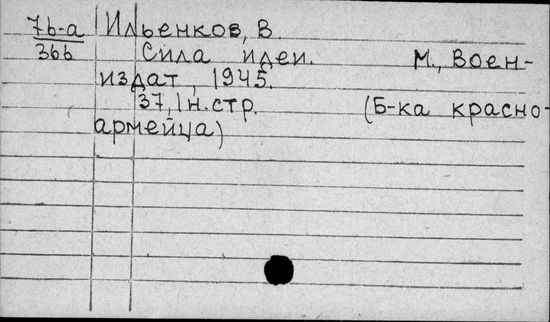 7б-а Ильенков, В.
366 Сила идеи. М., Воен-
издат, 1945.
37, 1 н.стр. (Б-ка красно-
армейца)